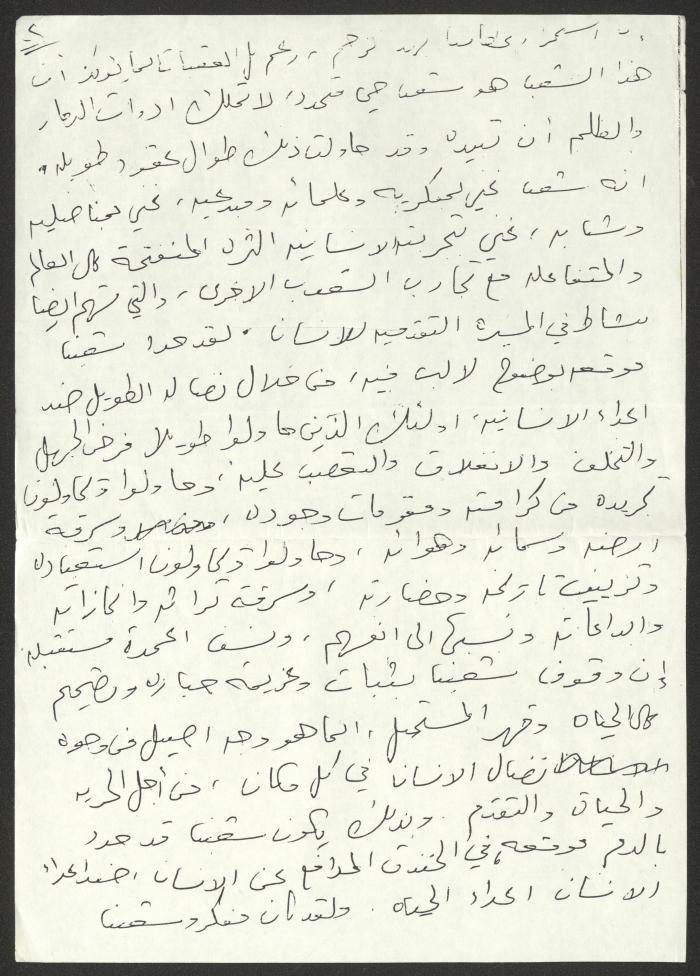 ٢
استمرار عطائنا رغم كل العقبات انما يؤكد أن
هذا الشعب هو شعب حي متجدد، لا تملك ادوات الدمار
والظلم أن تبيده وقد حاولت ذلك طوال عقود طويلة.
انه شعب غني بمفكريه وعلمائه ومبدعيه، غني بمناضليه
وشبابه، غني بتجربته الانسانية الثرة المنفتحة على العالم
والمتفاعله مع تجارب الشعوب الاخرى، والتي تسهم ايضا
بنشاط في المسيرة التقدميه للانسان. لقد حدد شعبنا
موقعه بوضوح لا لبس فيه، من خلال نضاله الطويل ضد
اعداء الانسانية، اولئك الذين حاولوا طويلا فرض الجهل
والتخلف والانغلاق والتعصب عليه، وحاولوا ويحاولون
تجريده من كرامته ومقومات وجوده، وسرقة
ارضه وسمائه وهوائه، وحاولوا ويحاولون استعباده
وتزييف تاريخه وحضارته، وسرقة تراثه وانجازاته
وابداعاته ونسبتها الى انفسهم، ونسف اعمدة مستقبله
إن وقوف شعبنا بثبات وعزيمة جبارة وتصميم
على الحياه وقهر المستحيل، انما هو وجه اصيل من وجوه
نضال الانسان في كل مكان، من أجل الحريه
والحياة والتقدم. وبذلك يكون شعبنا قد حدد
بالدم موقعه، في الخندق المدافع عن الانسان، ضد اعداء
الانسان اعداء الحياه. ولقد كان مفكرو شعبنا